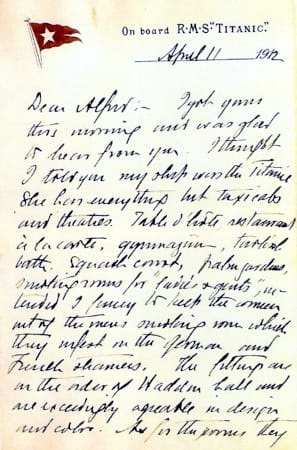 On board R·M·S·"TITANIC."
April 11 1912
Dear Alfred:- I got yours
this morning and was glad
to hear from you. I thought
I told you my ship was the Titanic
She has everything but taxicabs
and theatres. Table d'hôte, restaurant
à la carte, gymnasium, Turkish
bath, Squash court, palm gardens,
smoking rooms for "ladies & gents", in-
tended I fancy to keep the women
out of the mens smoking room which
they infest in the German and
French steamers. The fittings are
in the order of Haddon Hall and
are exceedingly agreeable in design
and color. As for the rooms they